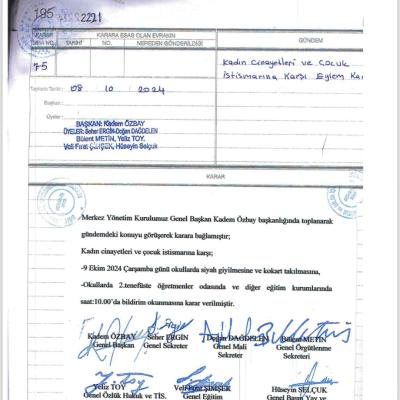 195 2221
KARAR
SIRA NO.
KARARA ESAS OLAN EVRAKIN
TARİHİ NO. NEREDEN GÖNDERİLDİĞİ
GÜNDEM
75
Kadın Cinayetleri ve Çocuk
istismarına Karşı Eylem Kar
Toplantı Tarihi : 08 10 2024
Başkan:
Üyeler:
BAŞKAN: Kadem ÖZBAY
ÜYELER: Seher ERGİN-Doğan DAĞDELEN
Bülent METİN, Yeliz TOY,
Veli Fırat ŞİMŞEK, Hüseyin Selçuk
KARAR
Merkez Yönetim Kurulumuz Genel Başkan Kadem Özbay başkanlığında toplanarak
gündemdeki konuyu görüşerek karara bağlamıştır;
Kadın cinayetleri ve çocuk istismarına karşı;
-9 Ekim 2024 Çarşamba günü okullarda siyah giyilmesine ve kokart takılmasına,
-Okullarda 2.teneffüste öğretmenler odasında ve diğer eğitim kurumlarında
saat:10.00'da bildirim okunmasına karar verilmiştir.
Kadem ÖZBAY Seher ERGİN Doğan DAĞDELEN Bülent METİN
Genel Başkan Genel Sekreter Genel Mali Genel Örgütlenme
Sekreter Sekreteri
Yeliz TOY Veli Fırat ŞİMŞEK Hüseyin SELÇUK
Genel Özlük Hukuk ve TİS. Genel Eğitim Genel Basın Yay ve